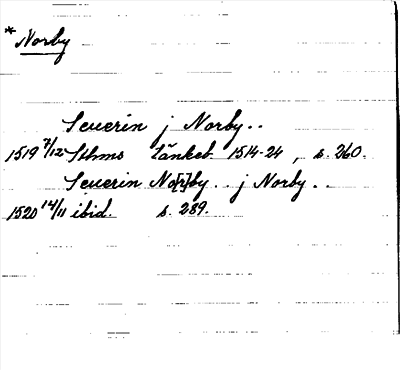 * Norby
Severin j Norby..
1519 7/12 Sthms tänkeb. 1514-24, s. 260.
Severin No[r]by.. j Norby..
1520 14/11 ibid. s. 289.